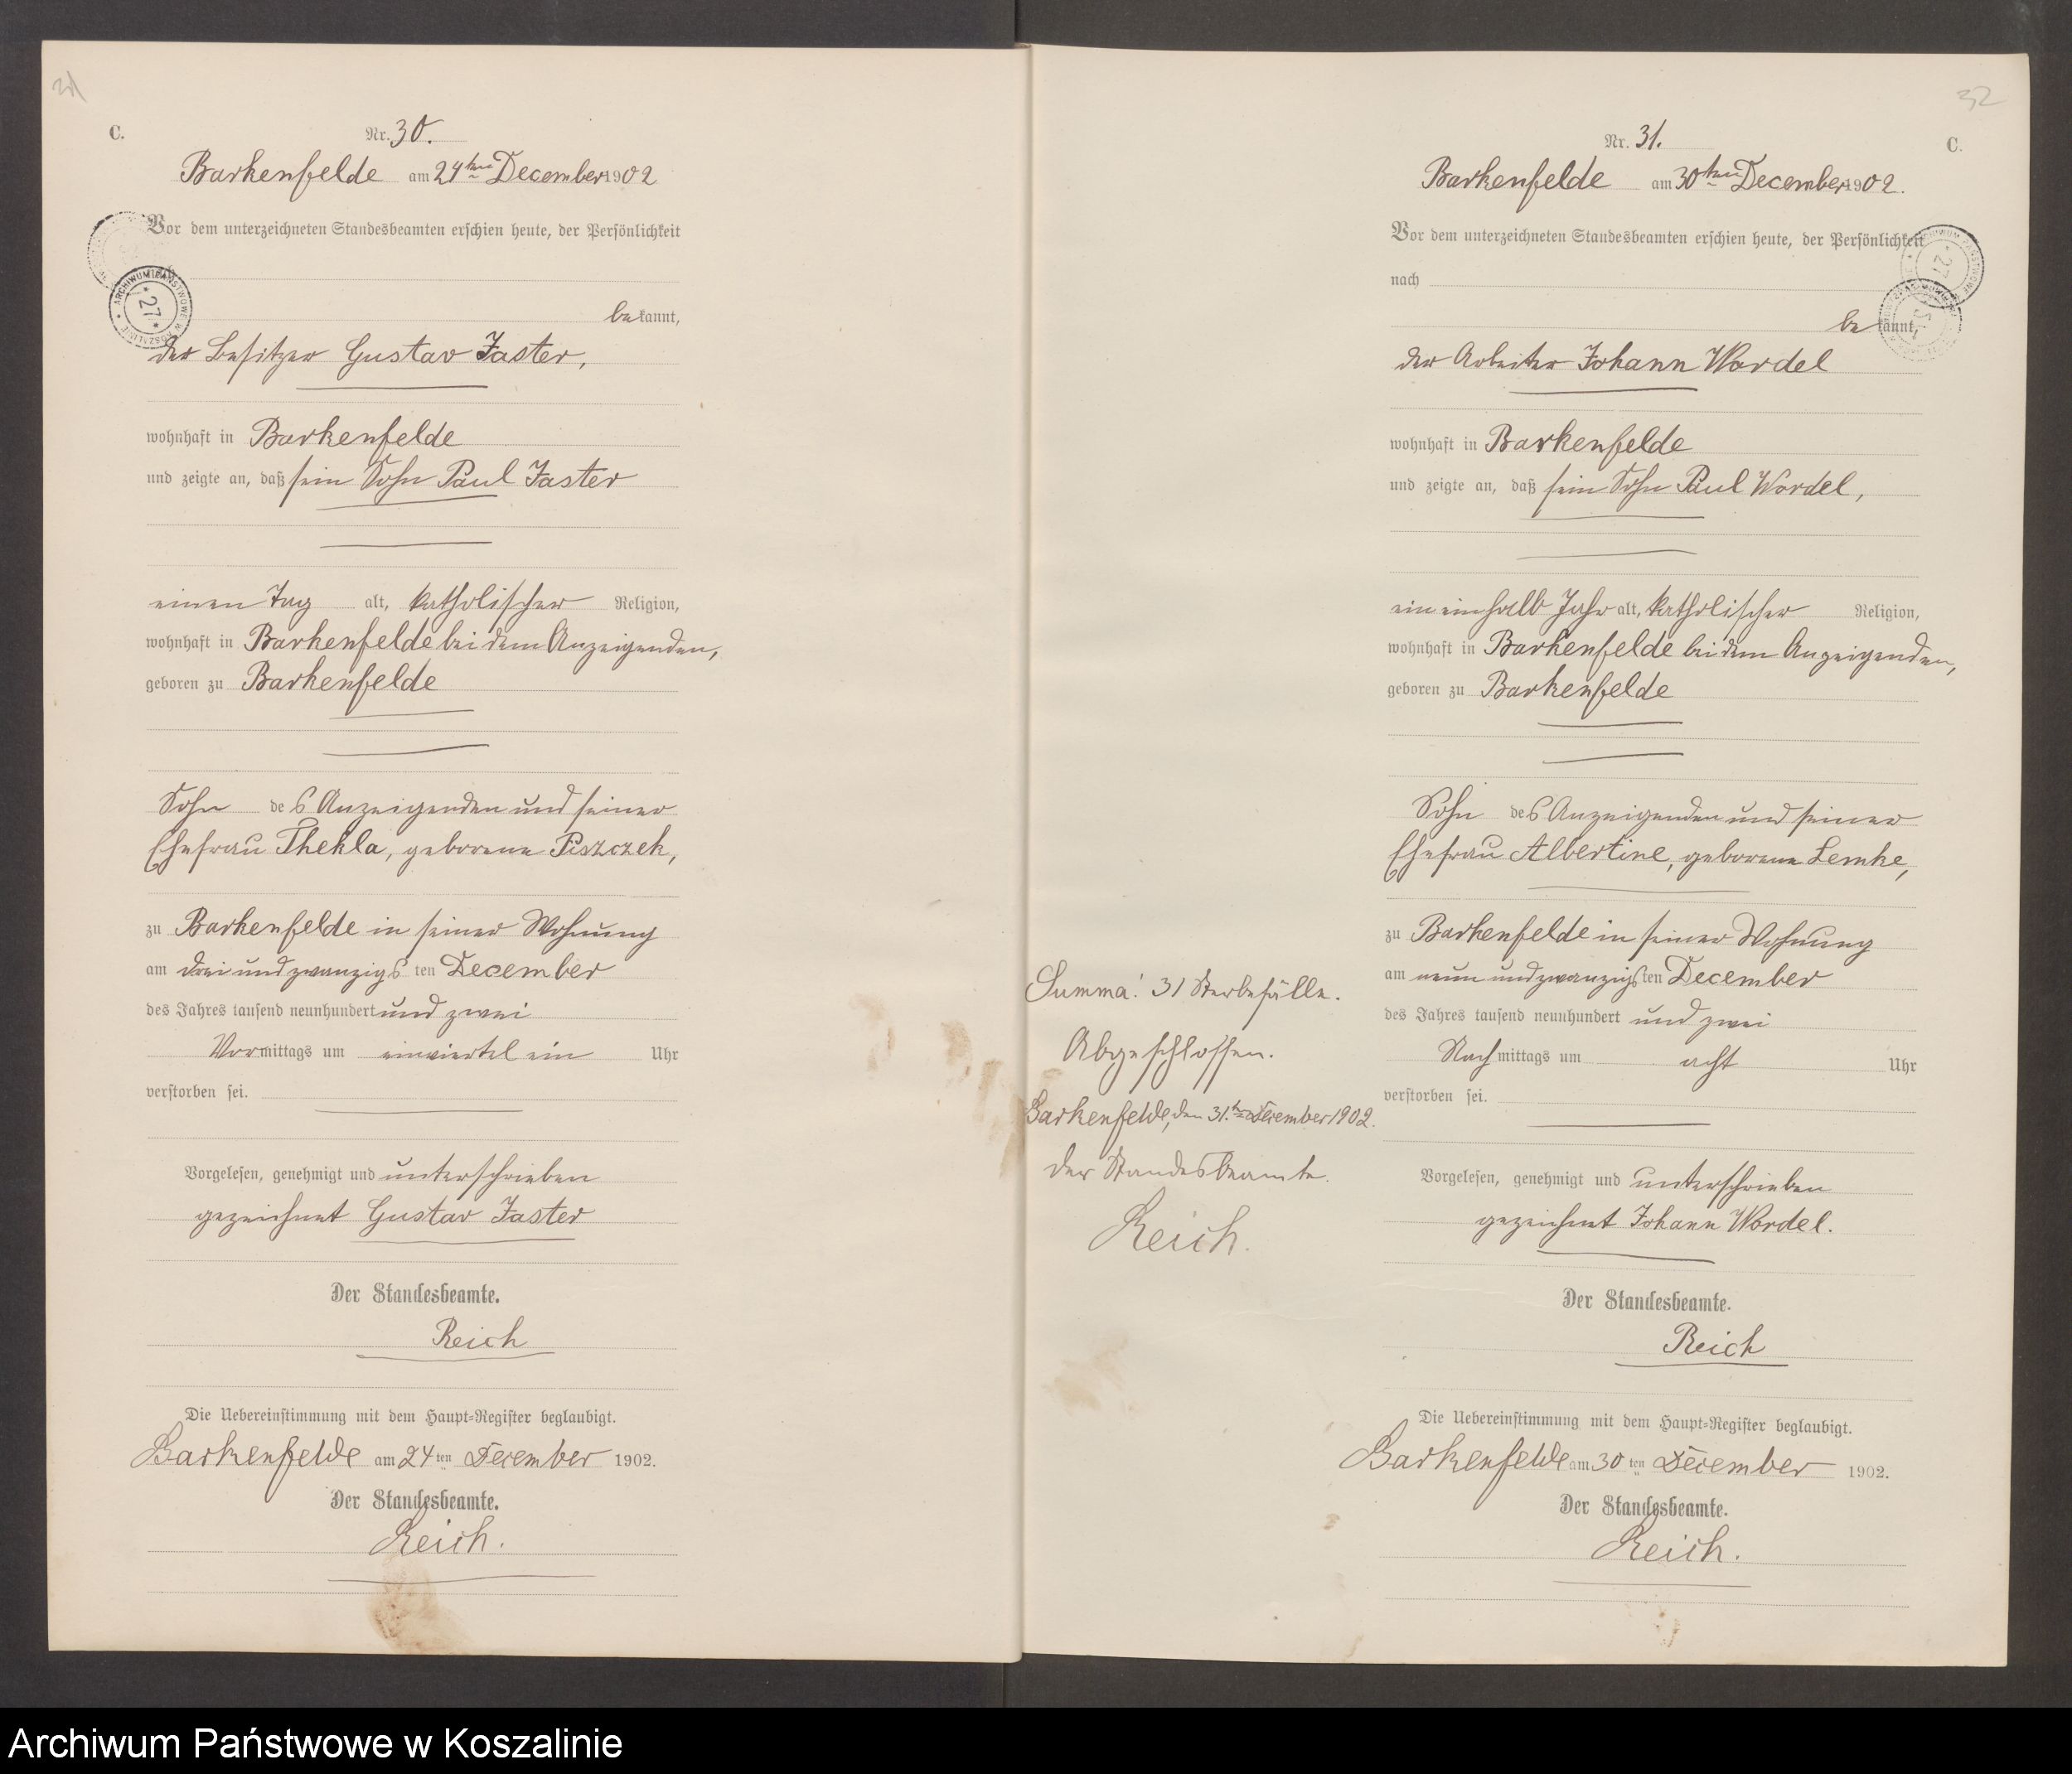 C.
Nr. 30.
Barkenfelde am 24ten December 1902
Vor dem unterzeichneten Standesbeamten erschien heute, der Persönlichkeit
bekannt,
der Besitzer Gustav Jaster,
wohnhaft in Barkenfelde
und zeigte an, daß sein Sohn Paul Jaster
einen Tag alt, katholischer Religion,
wohnhaft in Barkenfelde bei dem Anzeigenden,
geboren zu Barkenfelde
Sohn des Anzeigenden und seiner
Ehefrau Thekla, geborene Piszczek,
zu Barkenfelde in seiner Wohnung
am drei und zwanzigsten December
des Jahres tausend neunhundert und zwei
Vormittags um einviertel ein Uhr
verstorben sei.
Vorgelesen, genehmigt und unterschrieben
gezeichnet Gustav Jaster
Der Standesbeamte.
Reich
Die Uebereinstimmung mit dem Haupt=Register beglaubigt.
Barkenfelde am 24ten December 1902.
Der Standesbeamte.
Reich.
ARCHIWUM PAŃSTWOWE W KOSZALINIE
27
Summa: 31 Sterbefälle.
Abgeschlossen.
Barkenfelde, den 31.ten December 1902.
Der Standesbeamte.
Reich.
32
Nr. 31.
C.
Barkenfelde am 30ten December 1902.
Vor dem unterzeichneten Standesbeamten erschien heute, der Persönlichkeit
nach
bekannt,
der Arbeiter Johann Wordel
wohnhaft in Barkenfelde
und zeigte an, daß sein Sohn Paul Wordel,
ein einhalb Jahr alt, katholischer Religion,
wohnhaft in Barkenfelde bei dem Anzeigenden,
geboren zu Barkenfelde
Sohn des Anzeigenden und seiner
Ehefrau Albertine, geborene Lemke,
zu Barkenfelde in seiner Wohnung
am neun und zwanzigsten December
des Jahres tausend neunhundert und zwei
Nachmittags um acht Uhr
verstorben sei.
Vorgelesen, genehmigt und unterschrieben
gezeichnet Johann Wordel.
Der Standesbeamte.
Reich
Die Uebereinstimmung mit dem Haupt=Register beglaubigt.
Barkenfelde am 30ten December 1902.
Der Standesbeamte.
Reich.
Archiwum Państwowe w Koszalinie